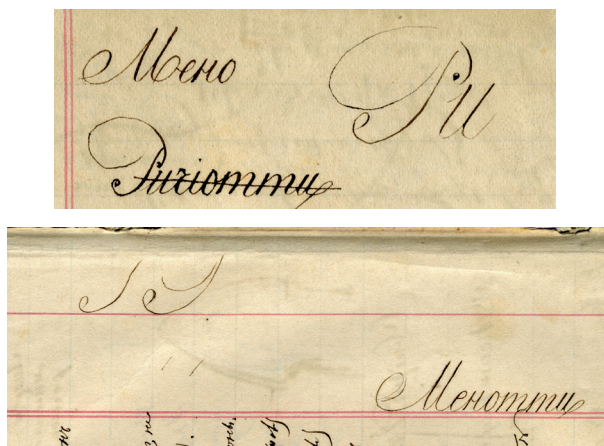 Мено
Ри
Ричіотти
Менотти